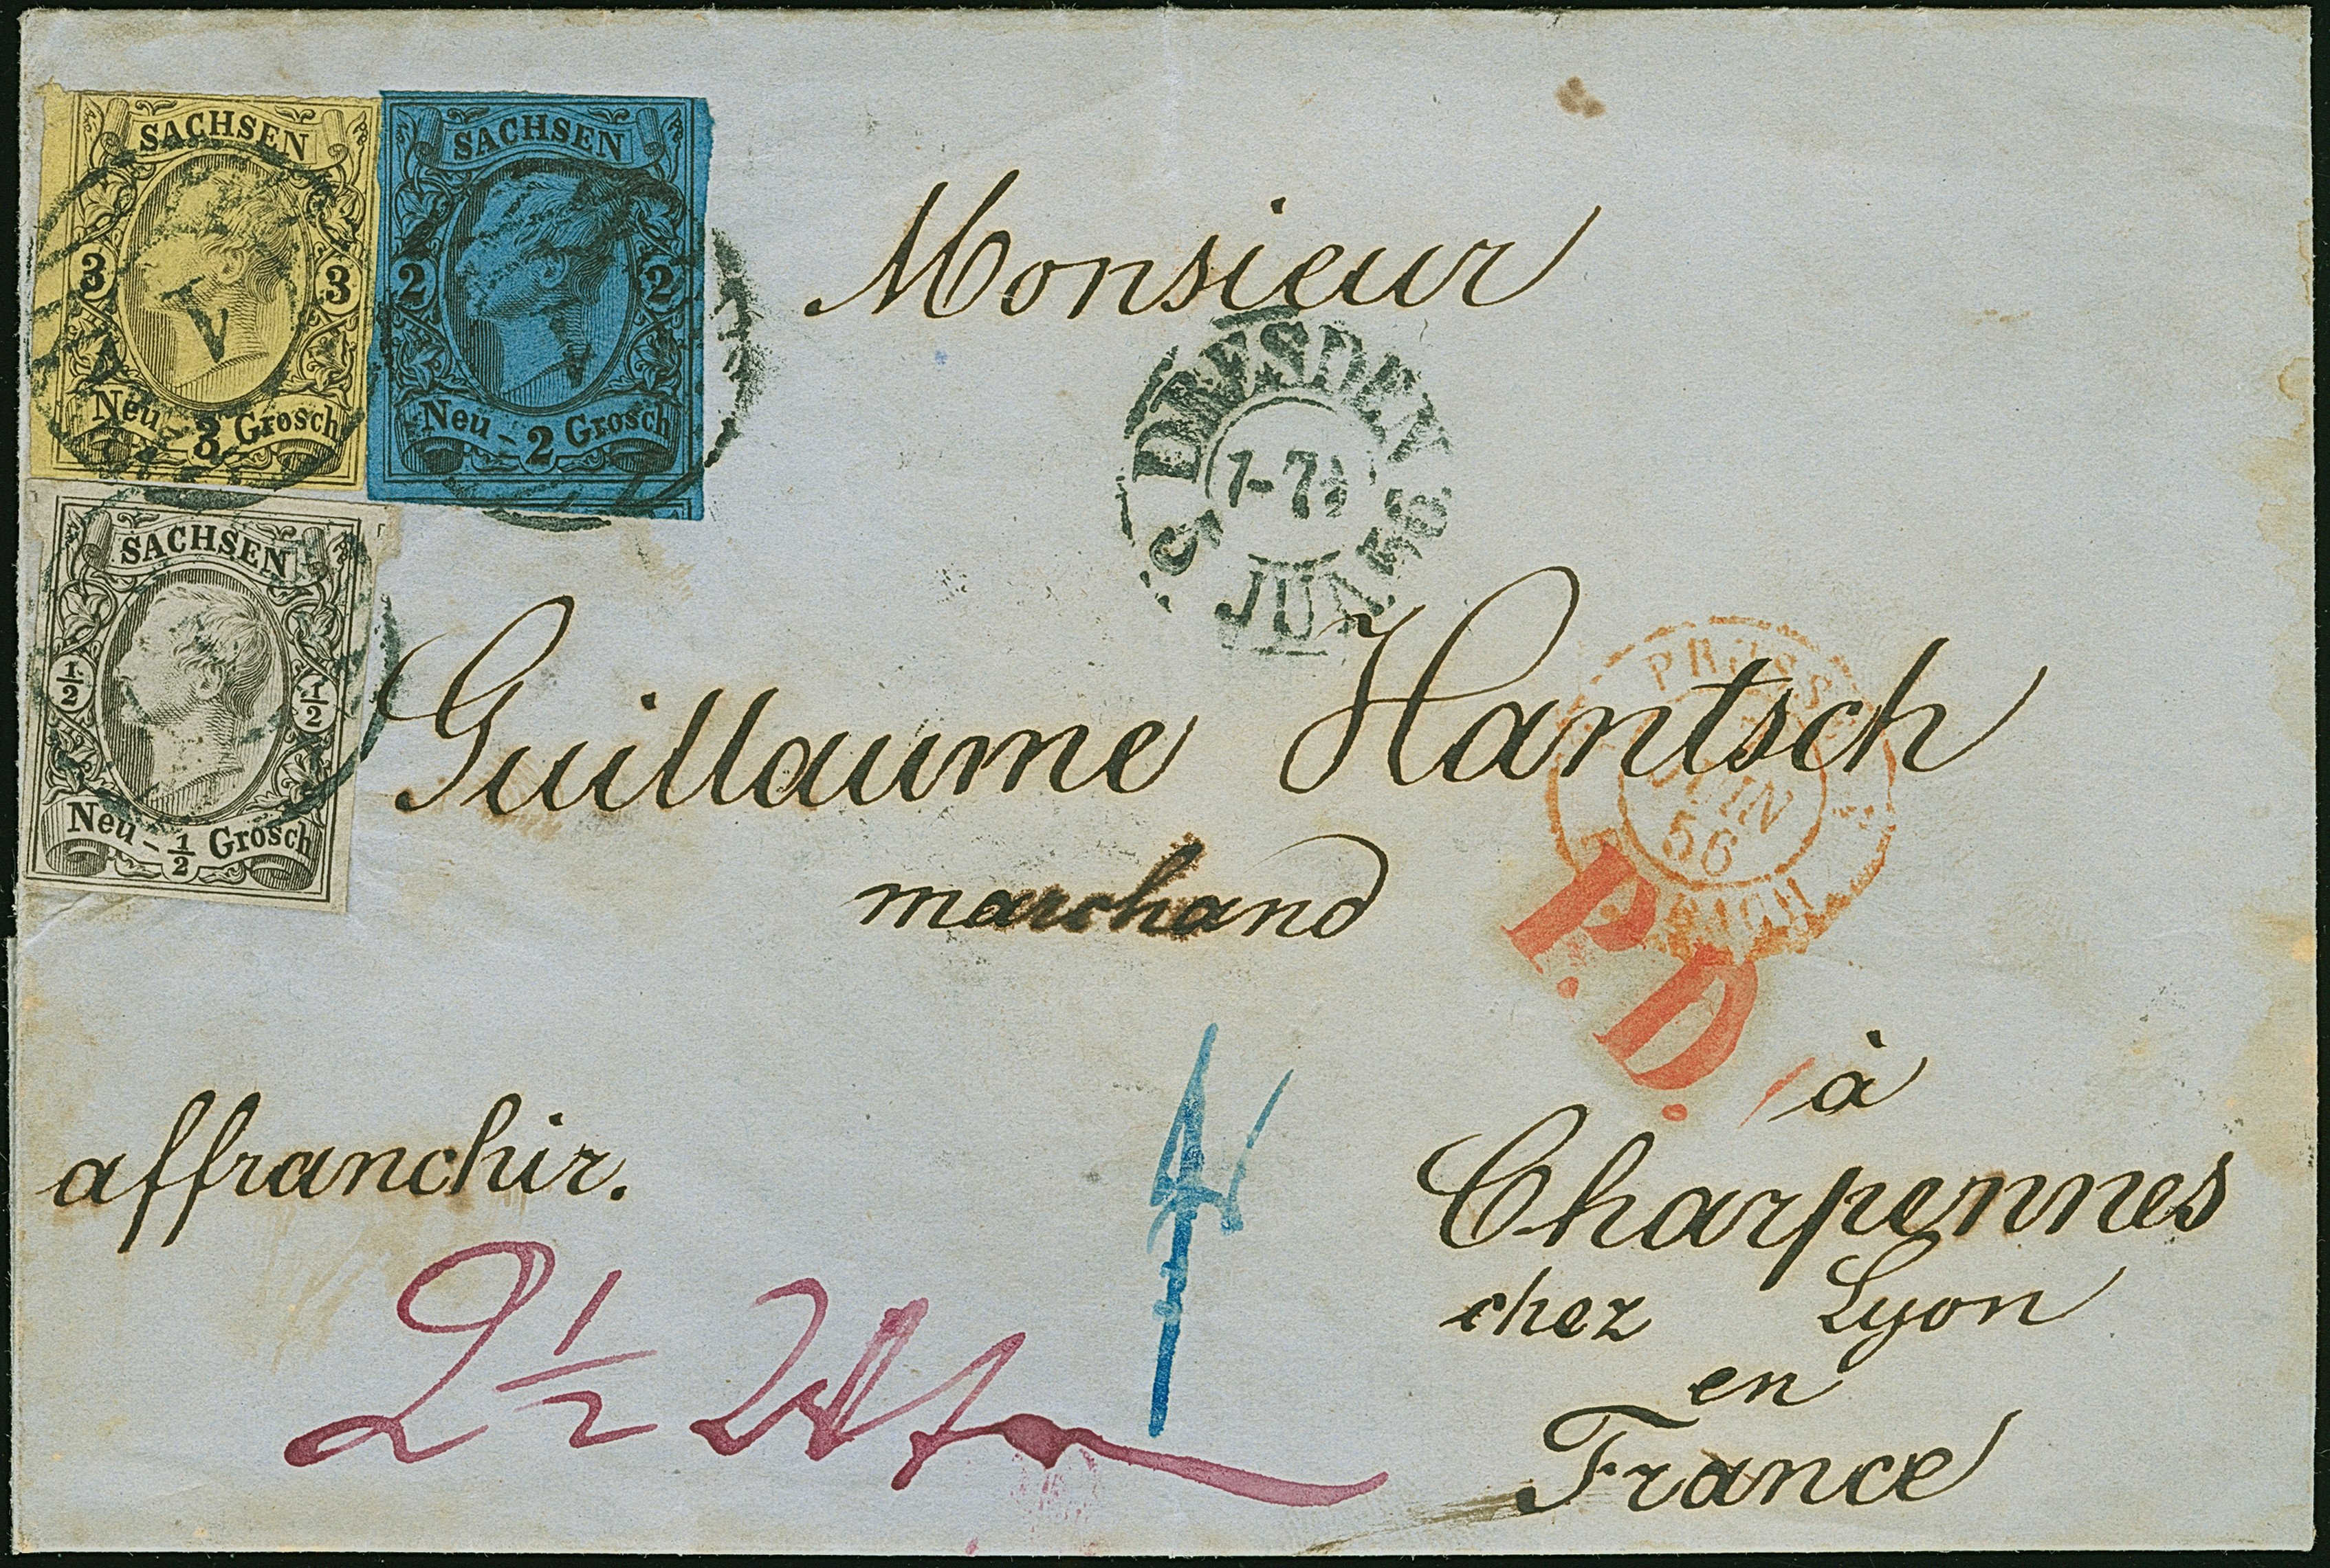 SACHSEN
3 3
Neu - 3 Grosch
SACHSEN
2 2
Neu - 2 Grosch
SACHSEN
1/2 1/2
Neu - 1/2 Grosch
Monsieur
DRESDEN
JUN 56
Guillaume Hantsch
marchand
PRUSSE
JUIN
56
P.D.
à
affranchir.
Charpennes
chez Lyon
en
France
2 1/2